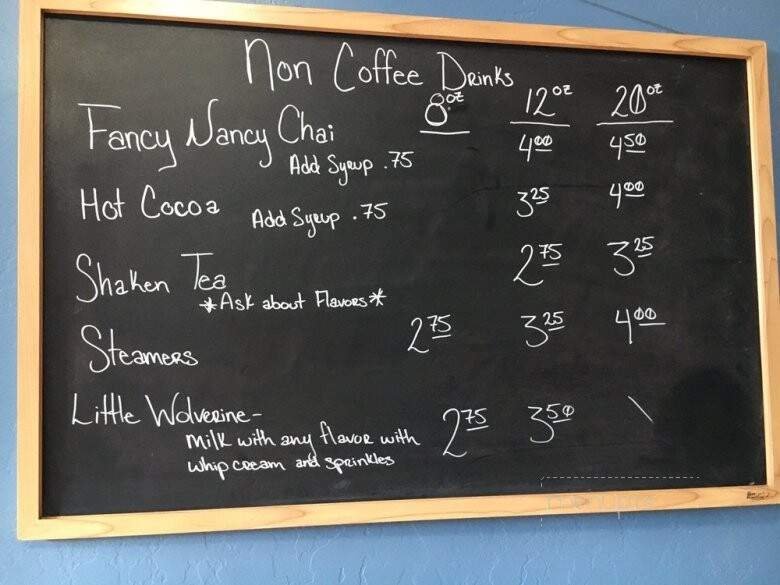 Non Coffee Drinks
8oz 12oz 20oz
Fancy Nancy Chai 4.00 4.50
Add Syrup .75
Hot Cocoa Add Syrup .75 3.25 4.00
Shaken Tea 2.75 3.25
*Ask about Flavors*
Steamers 2.75 3.25 4.00
Little Wolverine- 2.75 3.50 \
Milk with any flavor with
whip cream and sprinkles